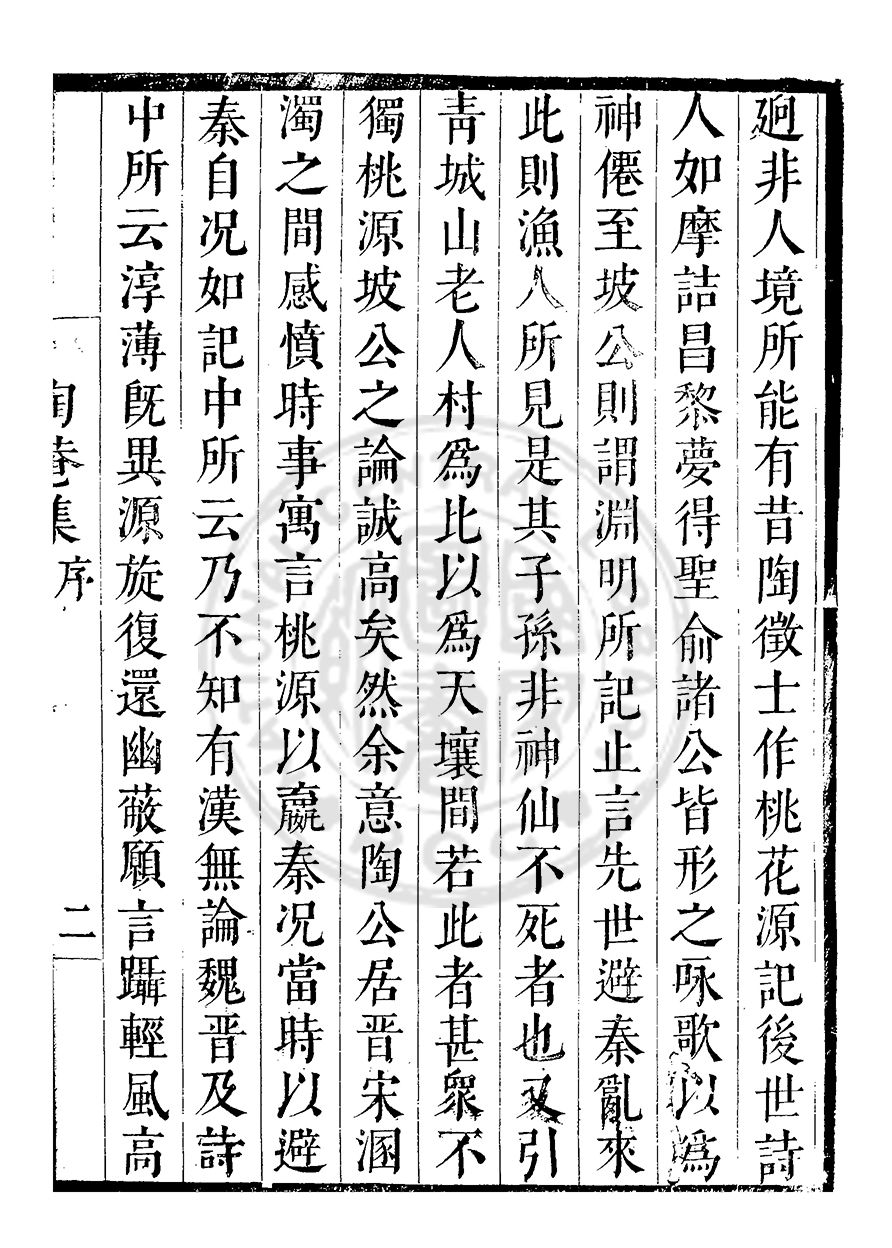 逈非人境所能有昔陶徵士作桃花源記後世詩
人如摩詰昌黎夢得聖俞諸公皆形之咏歌以爲
神僊至坡公則謂淵明所記止言先世避秦亂來
此則漁人所見是其子孫非神仙不死者也又引
靑城山老人村爲比以爲天壤間若此者甚衆不
獨桃源坡公之論誠高矣然余意陶公居晋宋溷
濁之間感憤時事寓言桃源以嬴秦况當時以避
秦自况如記中所云乃不知有漢無論魏晋及詩
中所云淳薄旣異源旋復還幽蔽願言躡輕風高
陶菴集 序 二